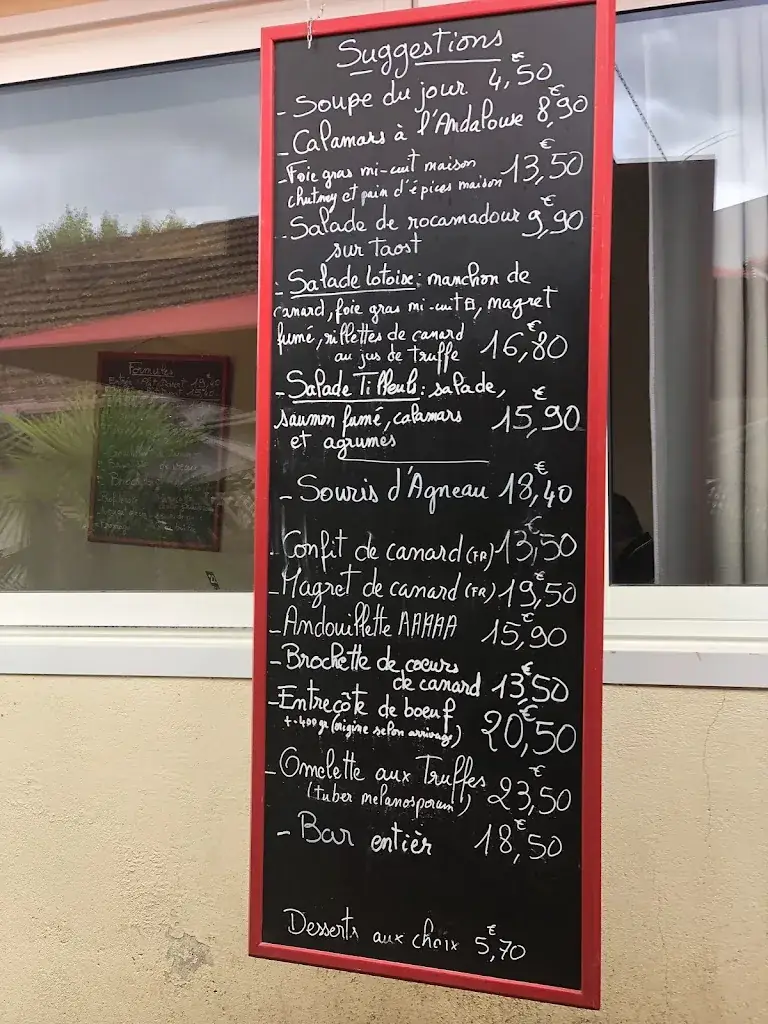 Suggestions
- Soupe du jour 4,50€
- Calamars à l'Andalouse 8,90€
- Foie gras mi-cuit maison
chutney et pain d'épices maison 13,50€
- Salade de rocamadour 9,90€
sur taost
- Salade Lotoise : manchon de
canard, foie gras mi-cuit, magret
fumé, rillettes de canard
au jus de truffe 16,80€
- Salade Tilleuls : salade,
saumon fumé, calamars 15,90€
et agrumes
- Souris d'Agneau 18,40€
- Confit de canard (FR) 13,50€
- Magret de canard (FR) 19,50€
- Andouillette AAAAA 15,90€
- Brochette de coeurs
de canard 13,50€
- Entrecôte de boeuf
+-400gr (origine selon arrivage) 20,50€
- Omelette aux Truffes
(tuber melanosporum) 23,50€
- Bar entièr 18,50€
Desserts aux choix 5,70€
Formules